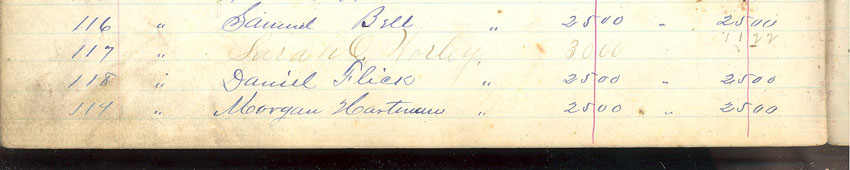 116 " Samuel Bell " 2500 " 2500
117 " Sarah C Worley 3000 1122
118 " Daniel Flick " 2500 " 2500
119 " Morgan Hartman " 2500 " 2500